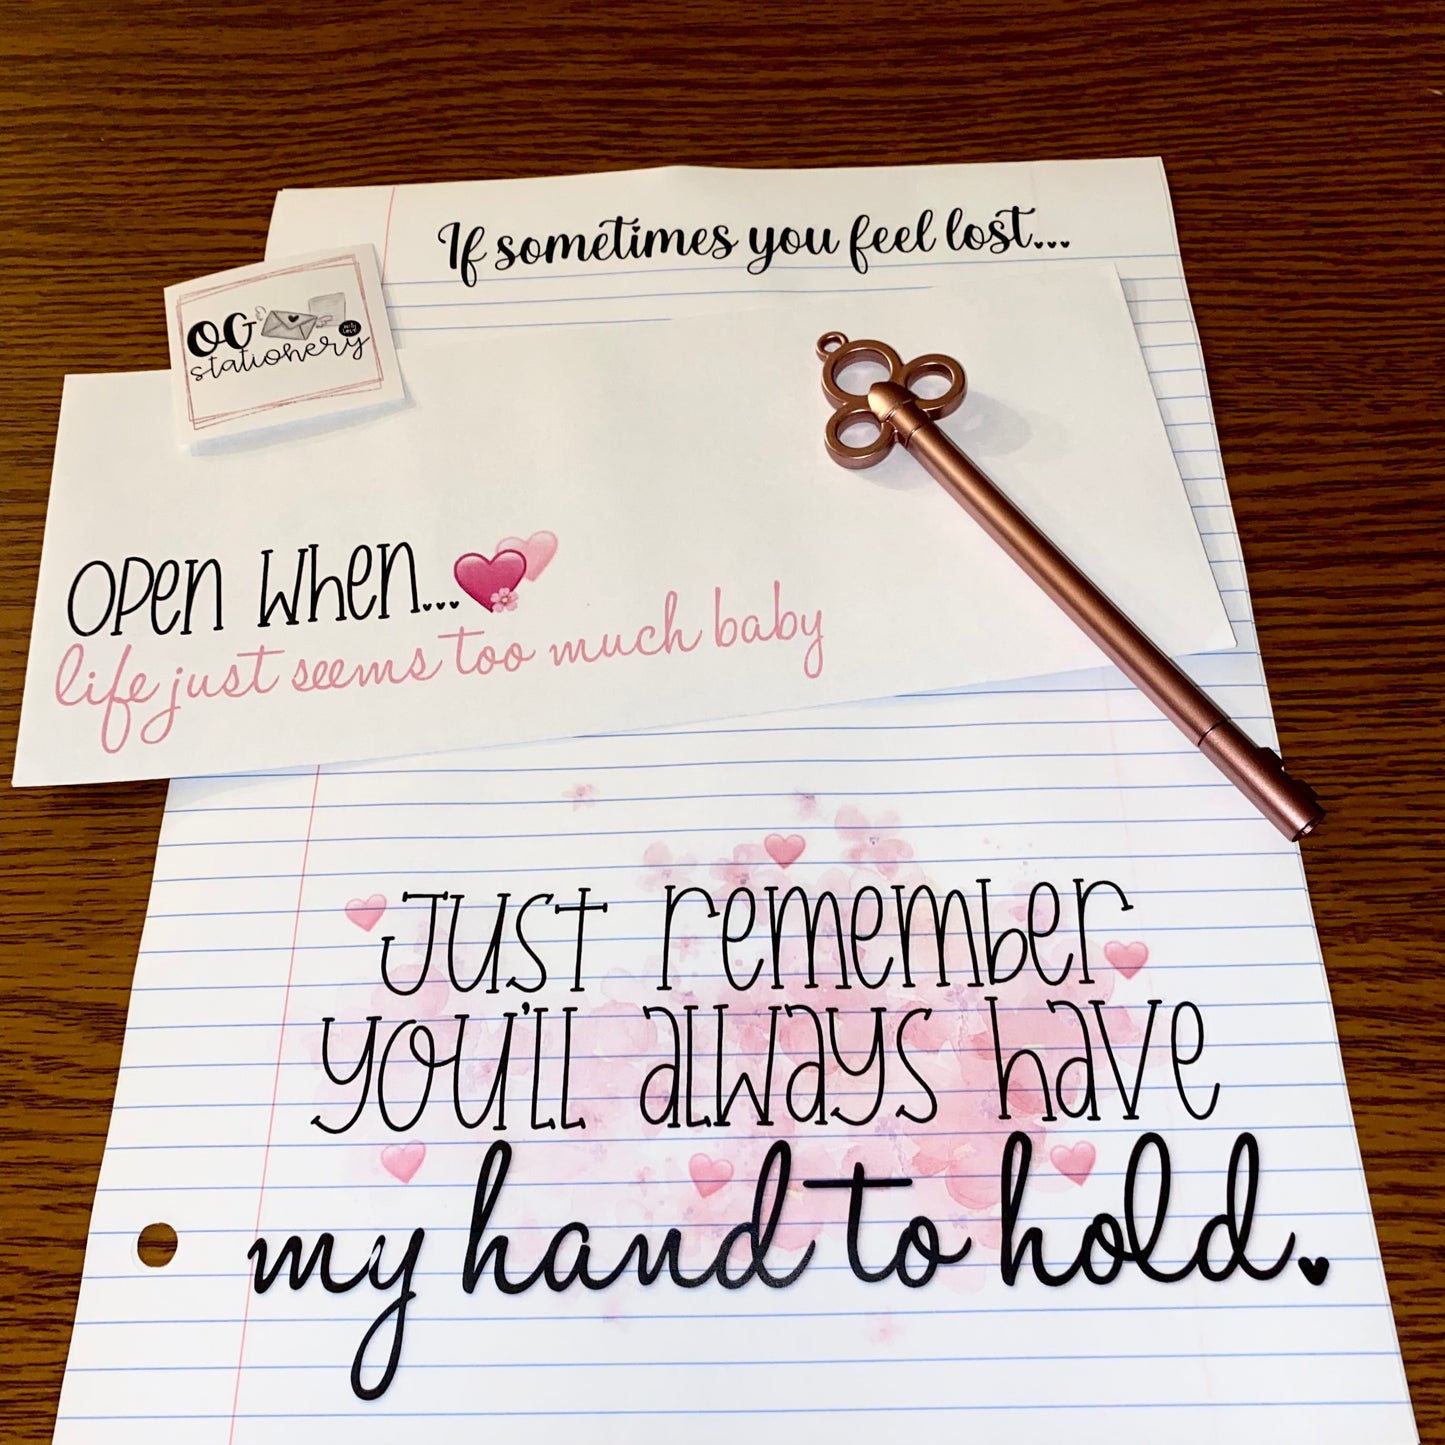 If sometimes you feel lost...
OG
stationery
Open When...
life just seems too much baby
Just remember
you'll always have
my hand to hold.